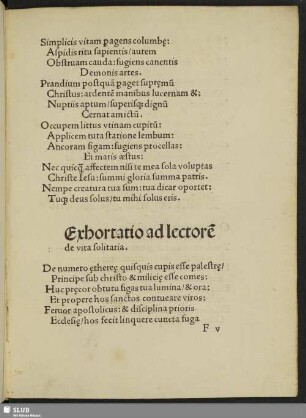 Simplicis vitam pagens columbę:
Aspidis ritu sapientis/autem
Obstruam cauda: fugiens canentis
Demonis artes.
Prandium postquā paget supręmū
Christus: ardentē manibus lucernam &;
Nuptiis aptum/superisqꝫ dignū
Cernat amictū.
Occupem littus vtinam cupitū:
Applicem tuta statione lembum:
Ancoram figam: fugiens procellas:
Et maris æstus:
Nec quicqꝫ affectem nisi te mea sola voluptas
Christe Iesu: summi gloria summa patris.
Nempe creatura tua sum: tua dicar oportet:
Tuqꝫ deus solus/tu mihi solus eris.
Exhortatio ad lectorē
de vita solitaria.
De numero ęthereę quisquis cupis esse palestrę/
Principe sub christo & militię esse comes:
Huc pręcor obtutu figas tua lumina/& ora;
Et propere hos sanctos contueare viros:
Feruor apostolicus: & disciplina prioris
Ecclesię/hos fecit linquere cuncta fuga
F v
SLUB